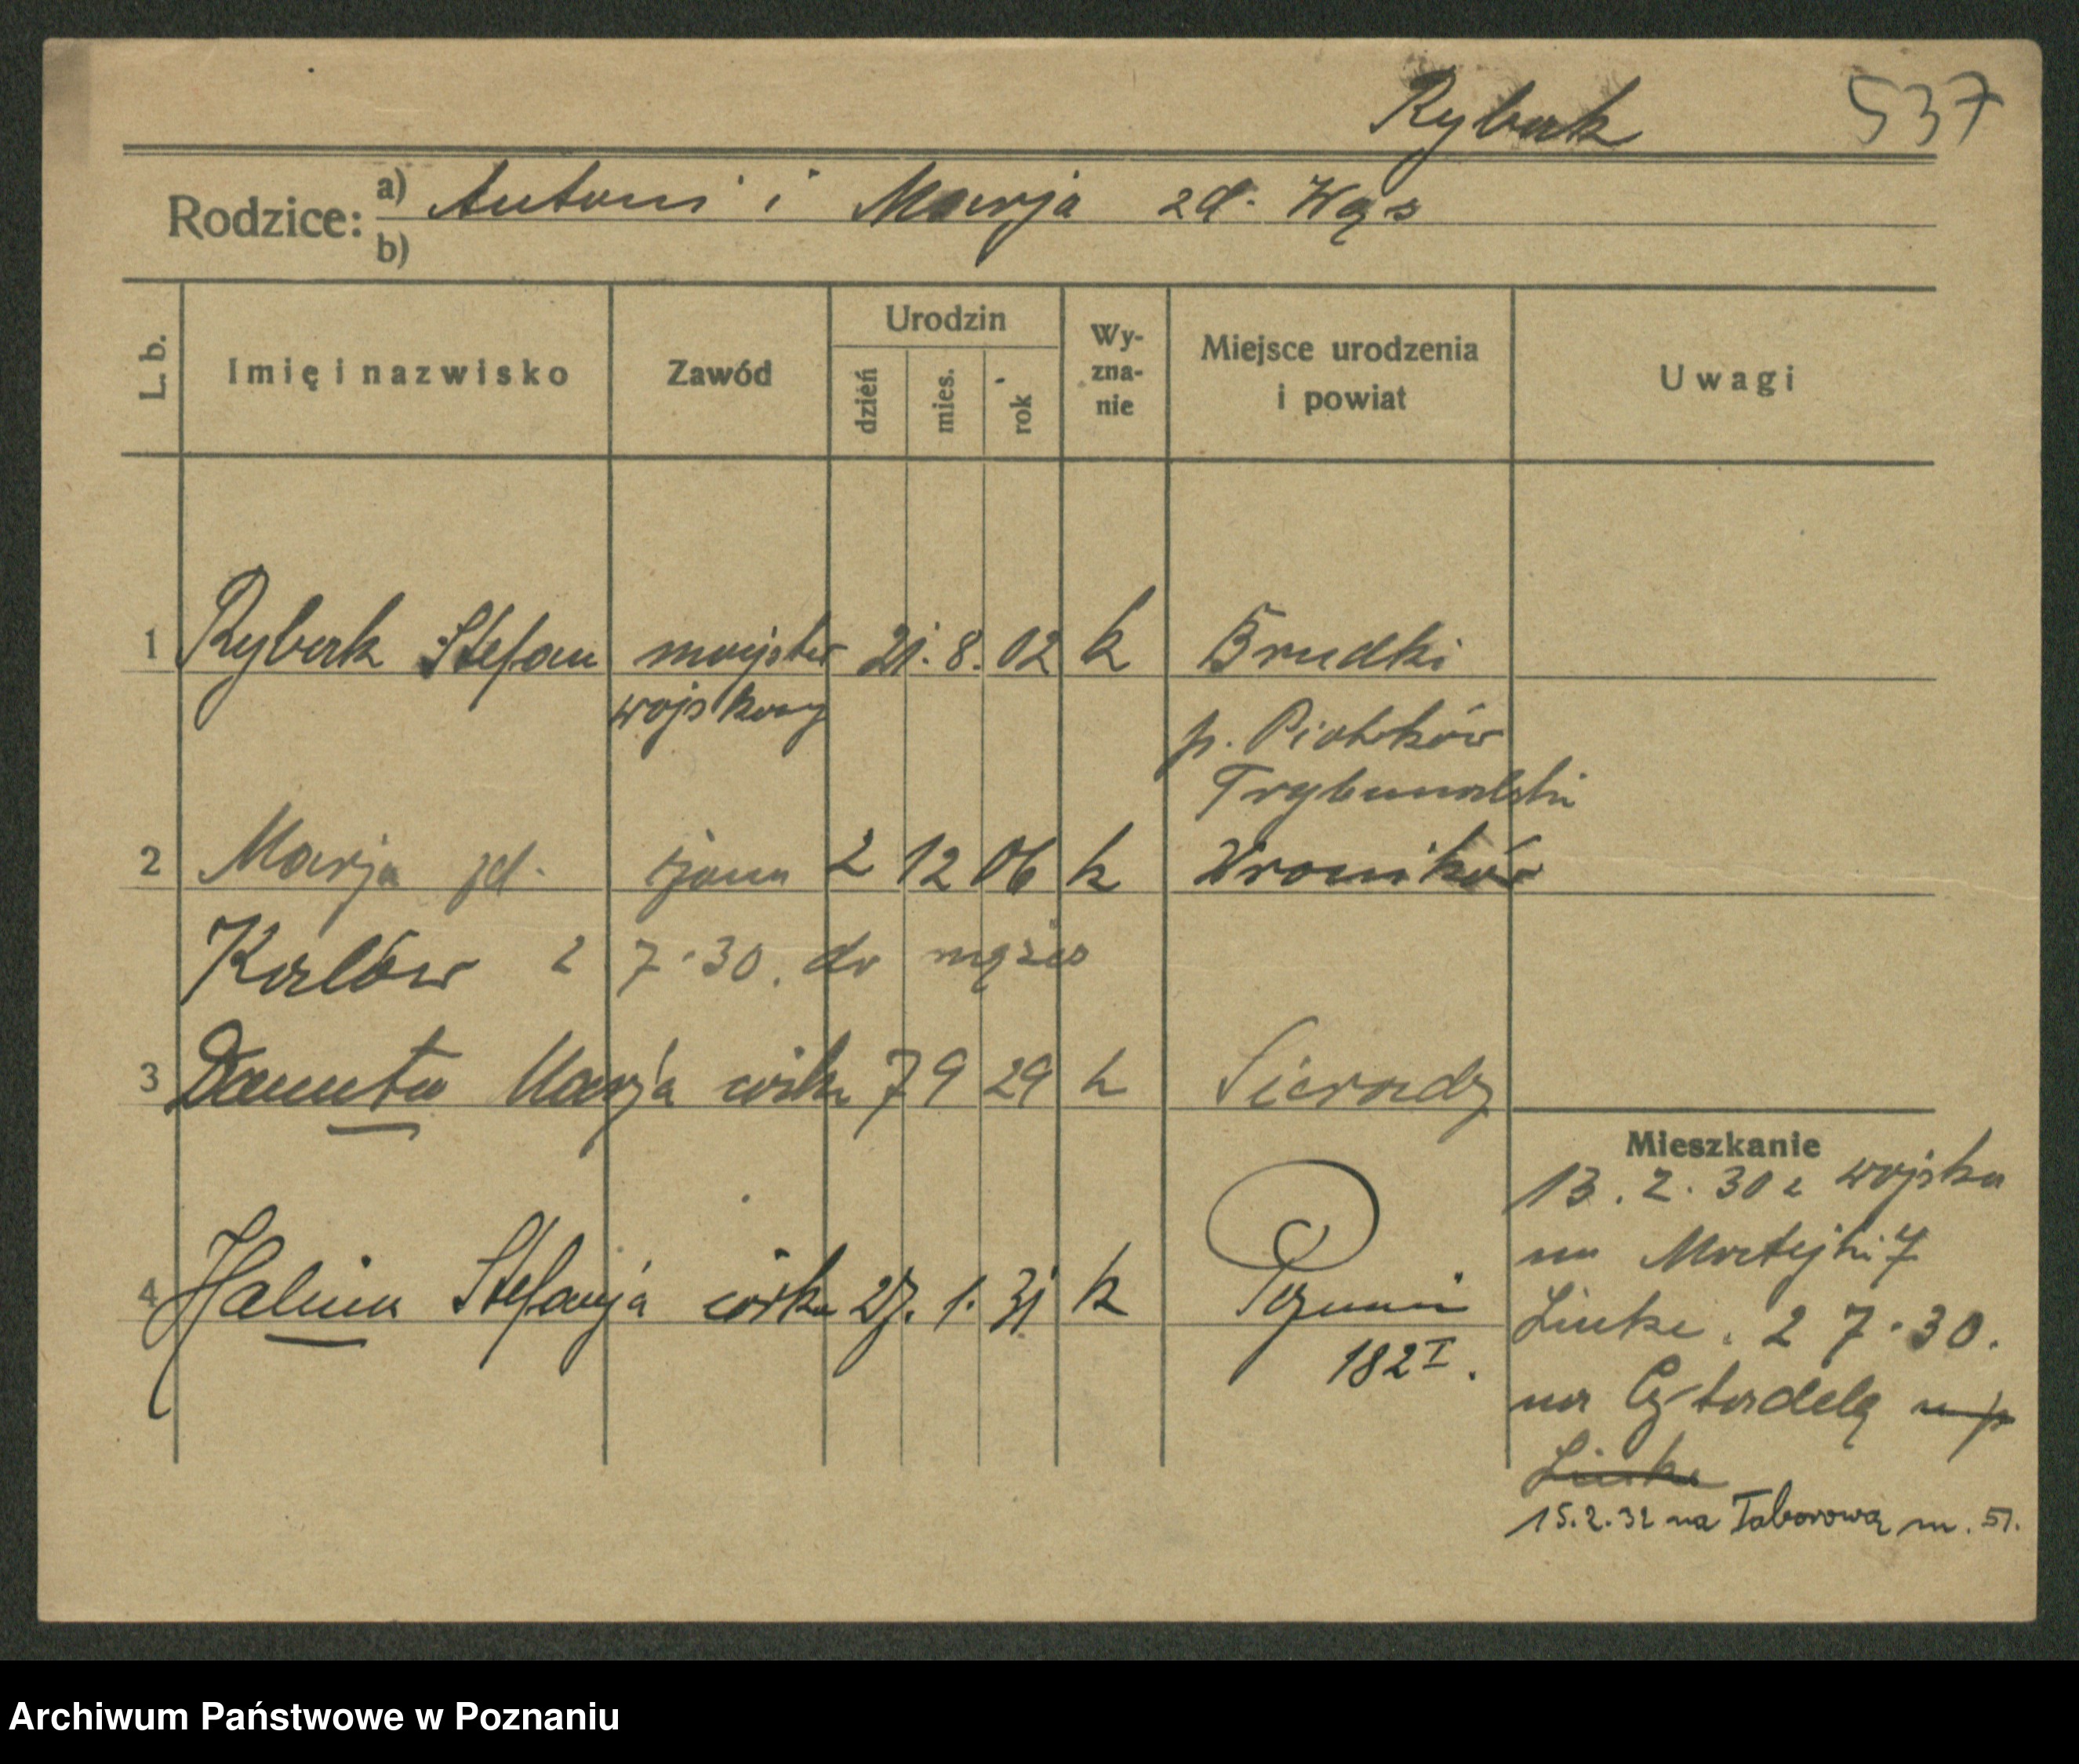 Rybak 537
Rodzice: a) Antoni i Marja zd. Wąs
b)
L. b. Imię i nazwisko Zawód Urodzin dzień mies. rok Wy-zna-nie Miejsce urodzenia i powiat Uwagi
1 Rybak Stefan majster 21. 8. 02 k Brudki
wojskowy p. Piotrków
Trybunalski
2 Marja zd. żona 2 12 06 k Wroników
Karlów 2 7·30. do męża
3 Danuta Marja córka 7 9 29 k Sieradz
Mieszkanie
13. 2. 30 z wojska
na Matejki 7
4 Halina Stefanja córka 27. 1. 31 k Poznań
Linke. 2 7·30.
182 I.
na Cytadelę
Linke
15.2.32 na Taborową m. 51.
Archiwum Państwowe w Poznaniu